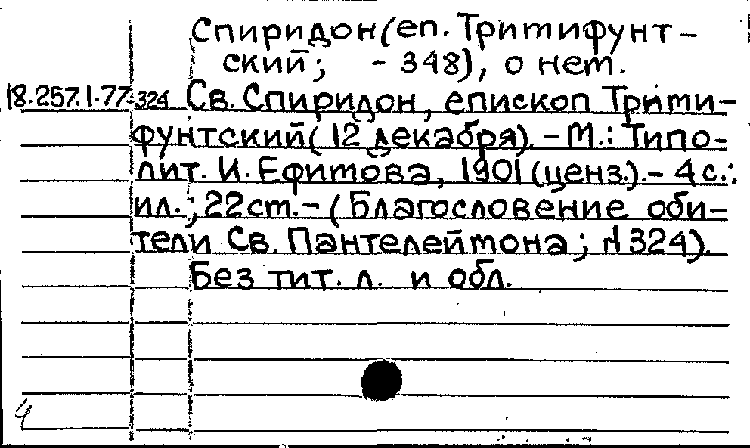 Спиридон (еп. Тримифунт-
ский; - 348), о нем.
18.257.1.77-324 Св. Спиридон, епископ Трими-
фунтский (12 декабря). - М.: Типо-
лит. И. Ефимова, 1901 (ценз.). - 4 с.:
ил.; 22 см. - (Благословение оби-
тели Св. Пантелеймона; № 324).
Без тит. л. и обл.
4